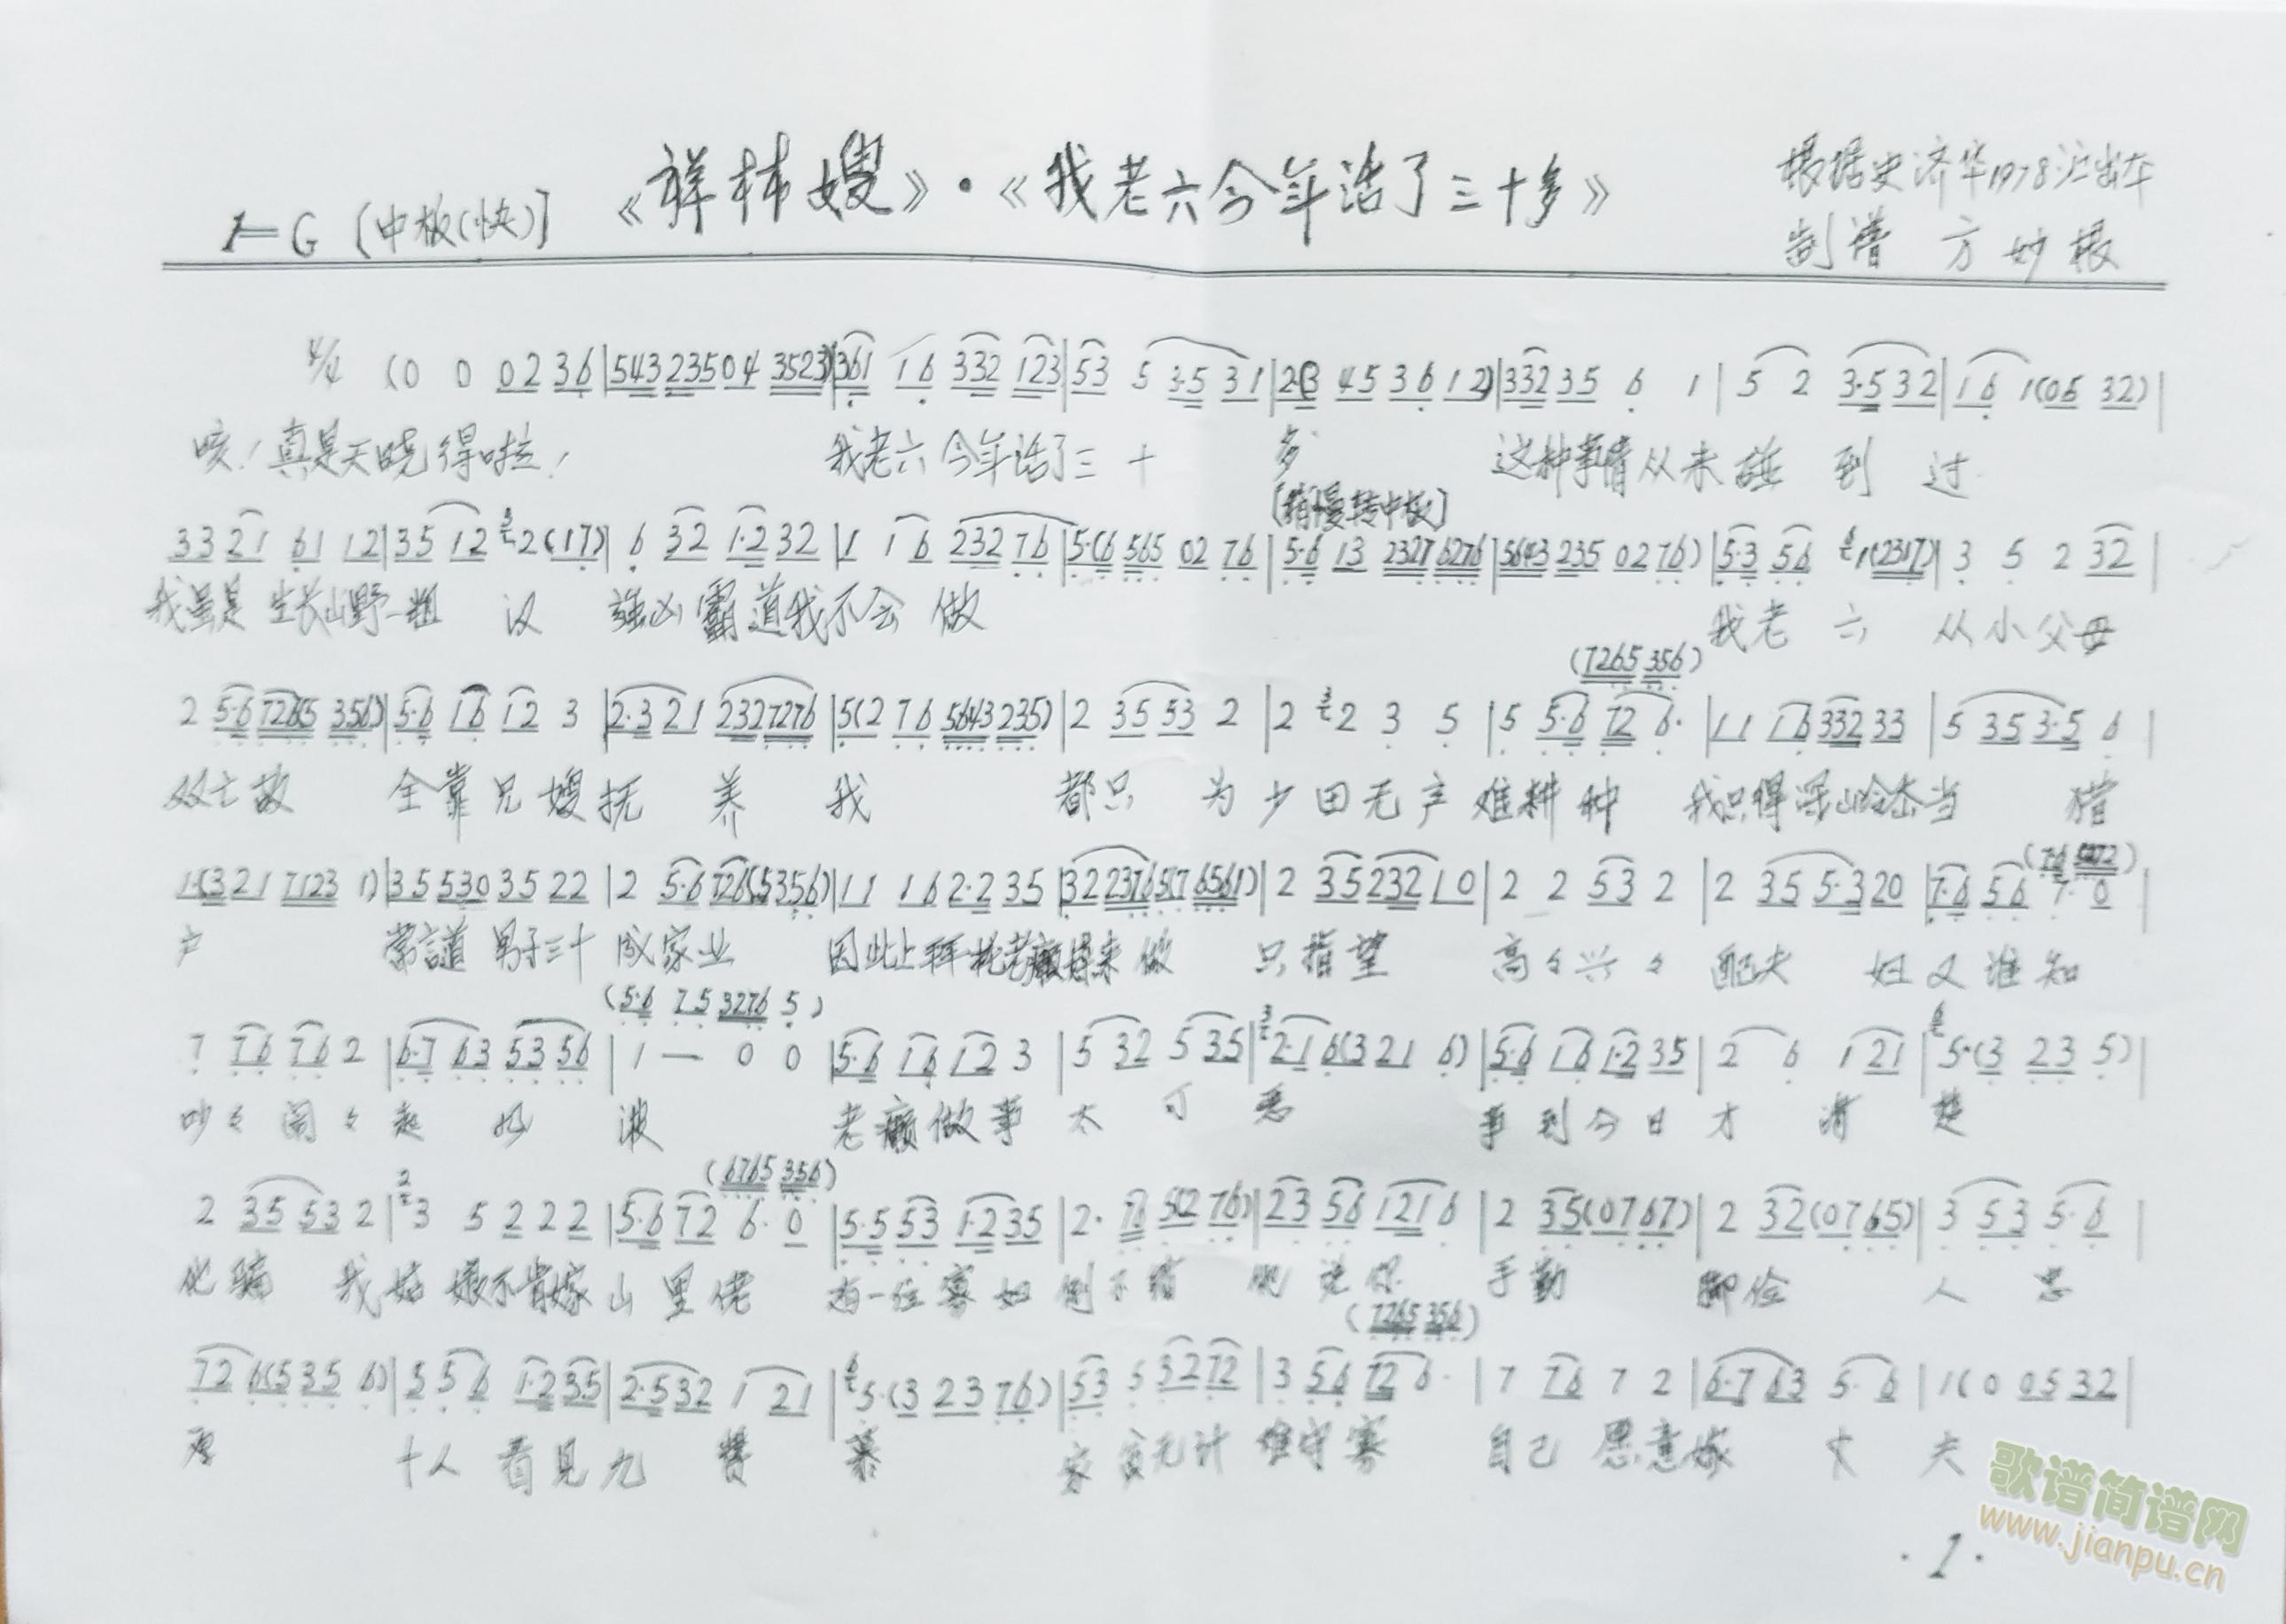 《祥林嫂》·《我老六今年活了三十多》
根据史济华1978演出本
1=G [中板(快)]
制谱 方妙根
4/4 (0 0 02 36|543 235 04 3523)|361 16 332 123|53 5 3·5 31|2·(3 45 36 12)|332 35 6 1|5 2 3·5 32|16 1(05 32)|
咳!真是天晓得啦! 我老六今年活了三十多 这种事情从未碰到过
[稍慢转中板]
33 21 61 12|35 12 2(17)|6 32 1·2 32|1 16 232 76|5·(6 565 02 76|5·6 13 2327 6276|5643 235 02 76)|5·3 56 1(2317)|3 5 2 32|
我虽是生长山野一粗汉 强凶霸道我不会做 我老六从小父母
(7265 356)
2 5·6 7265 356)|5·6 16 12 3|2·3 21 232 7276|5(2 76 5643 235)|2 35 53 2|2 2 3 5|5 5·6 72 6·|11 16 332 33|5 35 3·5 6|
双亡故 全靠兄嫂抚养我 都只为少田无产难耕种 我只得深山冷岙当猎
1·(3 21 7123 1)|35 530 35 22|2 5·6 726(5 356)|11 16 2·2 35|32 2376 5(7 6561)|2 35 232 10|2 2 53 2|2 35 5·3 20|7·6 56 7· 0|
户 常言道男子三十成家业 因此上拜托老癫将来做 只指望高々兴々配夫妇又谁知
(5·6 75 3276 5)
7 76 76 2|6·7 63 53 56|1 — 0 0|5·6 16 12 3|5 32 5 35|2·1 6(3 21 6)|5·6 16 1·2 35|2 6 1 21|5·(3 23 5)|
吵々闹々起风波 老癫做事太可恶 事到今日才清楚
(6765 356)
2 35 53 2|3 5 2 2 2|5·6 72 6· 0|5·5 53 1·2 35|2· 76 5(2 76)|23 56 121 6|2 35(0767)|2 32(0765)|3 53 5·6|
他骗我姑娘不肯嫁山里佬 有一位寡妇倒不错 他说你手勤脚俭人忠
(7265 356)
72 6(5 35 6)|5 56 1·2 35|2·5 32 1 21|5·(3 23 76)|53 5 32 72|3 56 72 6·|7 76 7 2|6·7 63 5·6|1(0 05 32|
厚 十人看见九赞慕 家贫无计难守寡 自己愿意嫁丈夫
歌谱简谱网
www.jianpu.cn
·1·